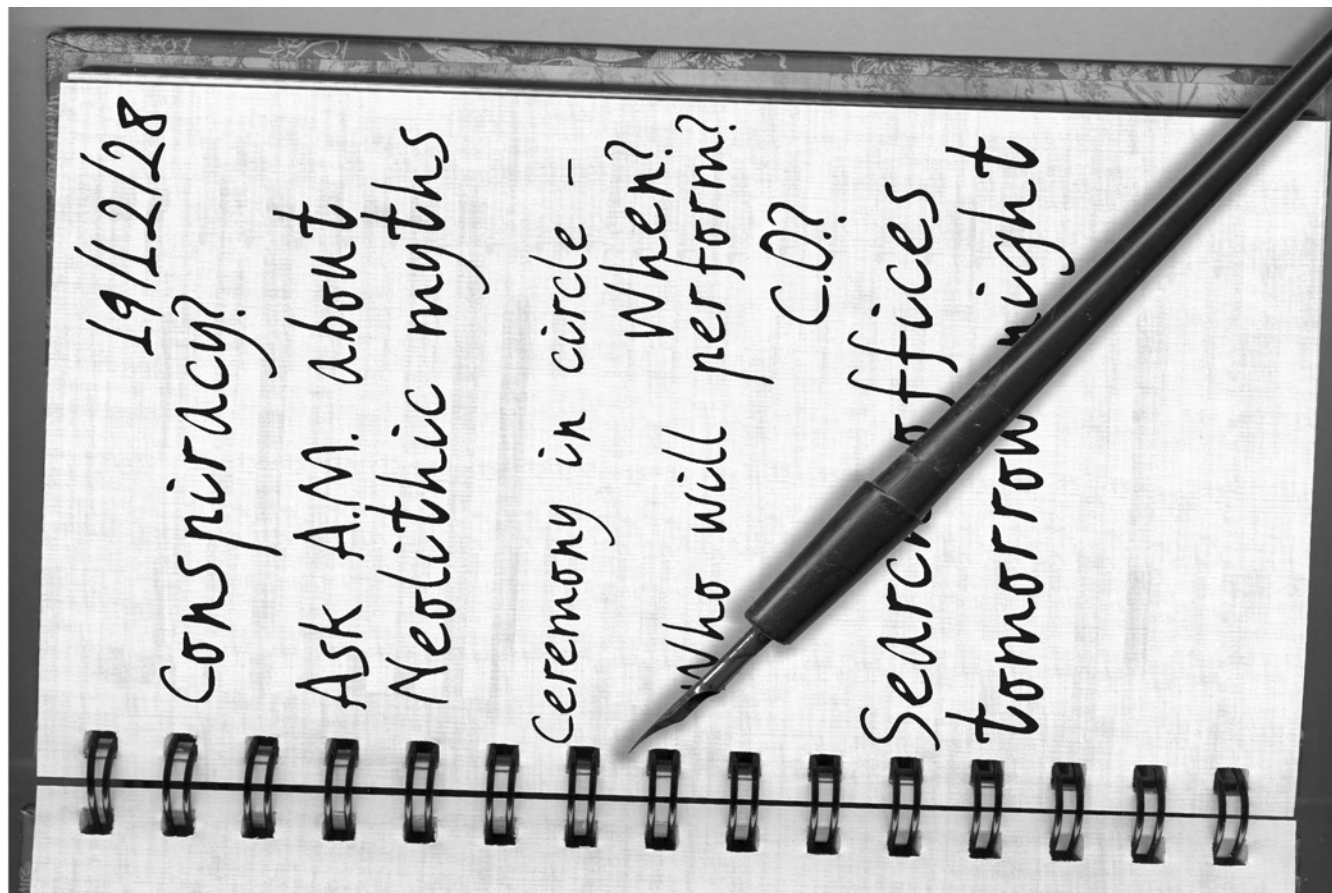 19/12/28
Conspiracy?
Ask A.M. about
Neolithic myths
Ceremony in circle -
When?
Who will perform?
C.O.?
Search offices
tomorrow night